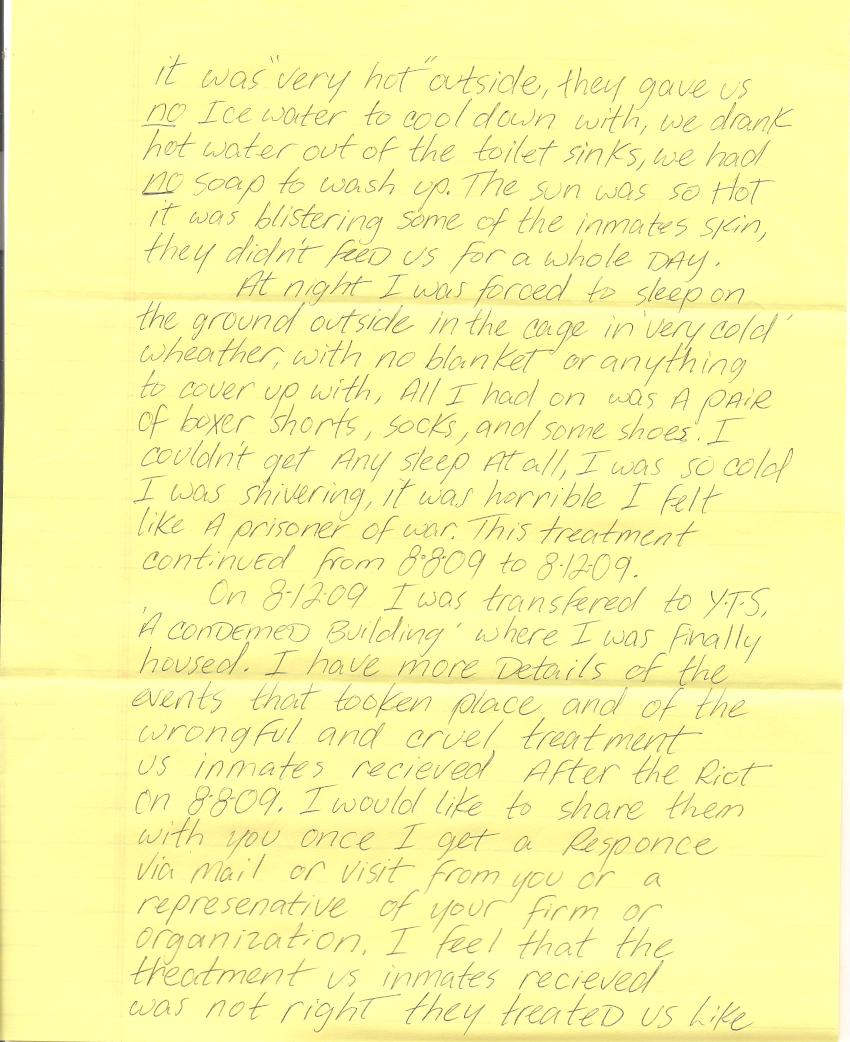 it was "very hot" outside, they gave us
no Ice water to cool down with, we drank
hot water out of the toilet sinks, we had
no soap to wash up. The sun was so Hot
it was blistering some of the inmates skin,
they didn't FEED us for a whole DAY.
At night I was forced to sleep on
the ground outside in the cage in 'very cold'
wheather, with no blanket or anything
to cover up with, All I had on was A PAIR
of boxer shorts, socks, and some shoes. I
couldn't get Any sleep At all, I was so cold
I was shivering, it was horrible I felt
like A prisoner of war. This treatment
continuED from 8·8·09 to 8·12·09.
On 8·12·09 I was transfered to Y.T.S,
'A conDEMED Building' where I was finally
housed. I have more Details of the
events that tooken place and of the
wrongful and cruel treatment
us inmates recieved After the Riot
on 8·8·09. I would like to share them
with you once I get a Responce
via mail or visit from you or a
represenative of your firm or
organization. I feel that the
treatment us inmates recieved
was not right they treateD us Like